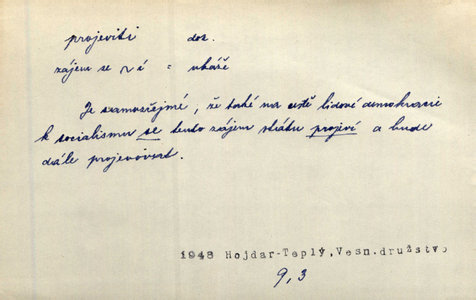 projeviti dok.
zájem se ~í = ukáže
Je samozřejmé, že také na cestě lidové demokracie
k socialismu se tento zájem státu projeví a bude
dále projevovat.
1948 Hojdar-Teplý, Vesn. družstvo
9,3